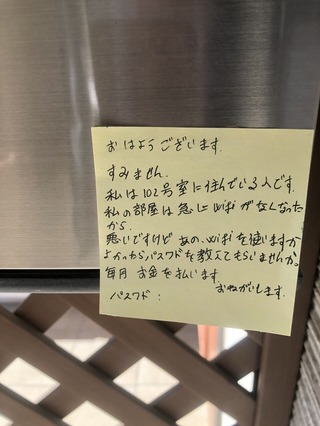 おはようございます。
すみません。
私は102号室に住んでいる人です。
私の部屋は急にwifiがなくなった
から。
悪いですけど あの、wifiを使いますか
よかったらパスワドを教えてもらいませんか。
毎月 お金を払います。
おねがいします。
パスワド：